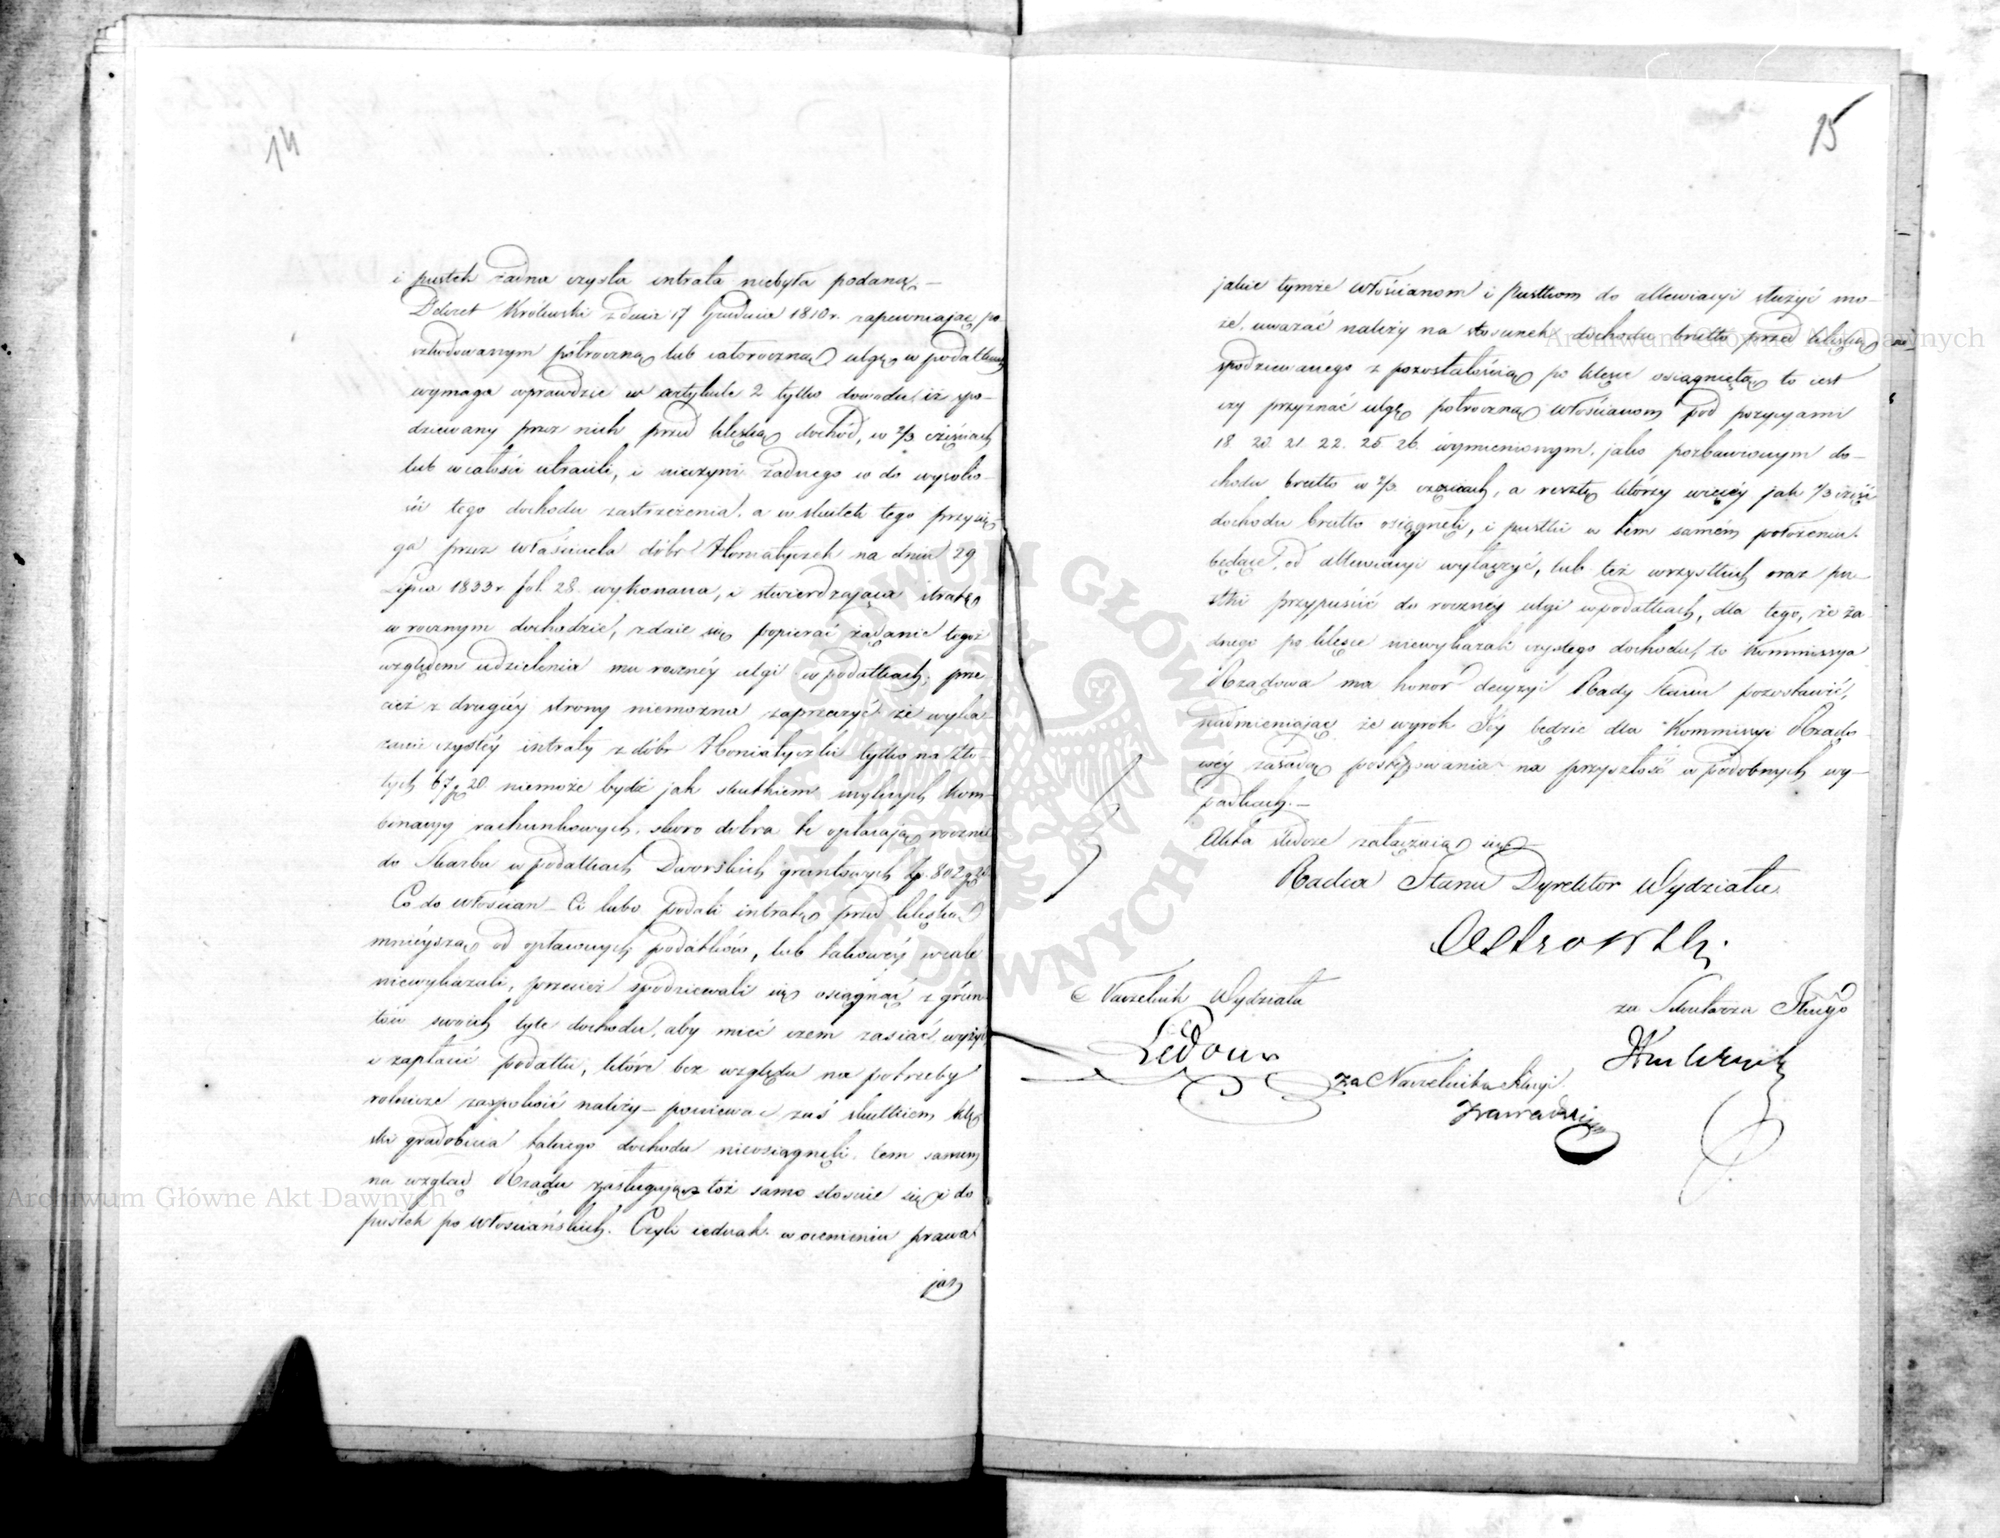 14
i pustek żadna czysta intrata niebyła podaną.—
Dekret Królewski z dnia 17 Grudnia 1810 r. zapewniając po-
szkodowanym półroczną lub całoroczną ulgę w podatkach
wymaga wprawdzie w artykule 2 tylko dowodu, iż spo-
dziewany przez nich przed klęską dochód, w 2/3 częściach
lub w całości utracili, i nieczyni żadnego co do wysoko-
ści tego dochodu zastrzeżenia, a w skutek tego przysię-
ga przez właściciela dóbr Honiatyczek na dniu 29
Lipca 1833 r. fol. 28. wykonana, i stwierdzająca stratę
w rocznym dochodzie, zdaie się popierać żądanie tegoż
względem udzielenia mu roczney ulgi w podatkach; prze-
cież z drugiéy strony niemożna zaprzeczyć że wyka-
zanie czystéy intraty z dóbr Honiatyczki tylko na Zło-
tych 67 g 20 niemoże bydź jak skutkiem mylnych kom-
binacyy rachunkowych, skoro dobra te opłacają rocznie
do Skarbu w podatkach Dworskich gruntowych
Co do Włościan — Ci lubo podali intratę przed klęską
mnieyszą od opłacanych podatków, lub takowéy wcale
niewykazali, przecież spodziewali się osiągnąć z grun-
tów swoich tyle dochodu, aby mieć czem zasiać, wyżyć
i zapłacić podatki, które bez względu na potrzeby
rolnicze zaspokoić należy — ponieważ zaś skutkiem klę-
ski gradobicia takiego dochodu nieosiągnęli, tem samem
na wzgląd Rządu zasługują toż samo stosuie się i do
pustek po Włościańskich. Czyli iednak w ocenieniu prawa
jak
15
jakie tymże Włościanom i Pustkom do allewiacyi służyć mo-
że, uważać należy na stosunek dochodu brutto przed klęską
spodziewanego z pozostałością po klęsce osiągniętą to iest
czy przyznać ulgę półroczną Włościanom pod pozycyami
18 20 21. 22. 25 26. wymienionym, jako pozbawionym do-
chodu brutto w 2/3. częściach, a resztę którzy więcéy jak 1/3 część
dochodu brutto osiągnęli, i pustki w tem samém położeniu
będące, od allewiacyi wyłączyć, lub też wszystkich oraz pu-
stki przypuścić do roczney ulgi w podatkach, dla tego, że ża-
dnego po klęsce niewykazali czystego dochodu, to Kommissya
Rządowa ma honor decyzyi Rady Stanu pozostawić,
nadmieniając, że wyrok Jéy będzie dla Kommissyi Rządo-
wéy zasadą postępowania na przyszłość w podobnych wy-
padkach.—
Akta śledcze załączaią się.—
Radca Stanu Dyrektor Wydziału
Ostrowski.
Naczelnik Wydziału
za Sekretarza
za Naczelnika Sekcyi
Zawadzki
Archiwum Główne Akt Dawnych
Archiwum Główne Akt Dawnych
ARCHIWUM GŁÓWNE AKT DAWNYCH